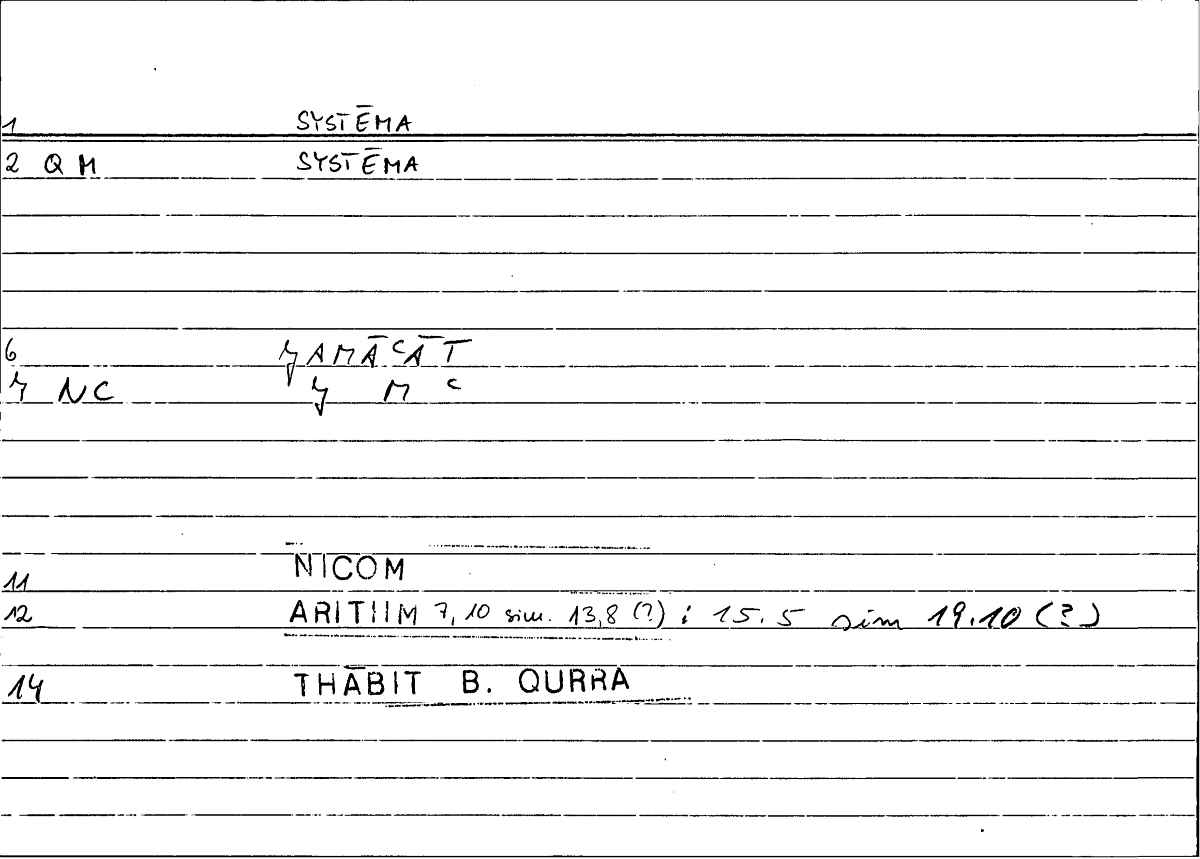 1 SYSTĒMA
2 Q M SYSTĒMA
6 ӋAMĀᶜĀT
7 NC Ӌ M ᶜ
11 NICOM
12 ARITIIM 7,10 sim. 13,8 (?) ; 15.5 sim 19.10 (?)
14 THĀBIT B. QURRA